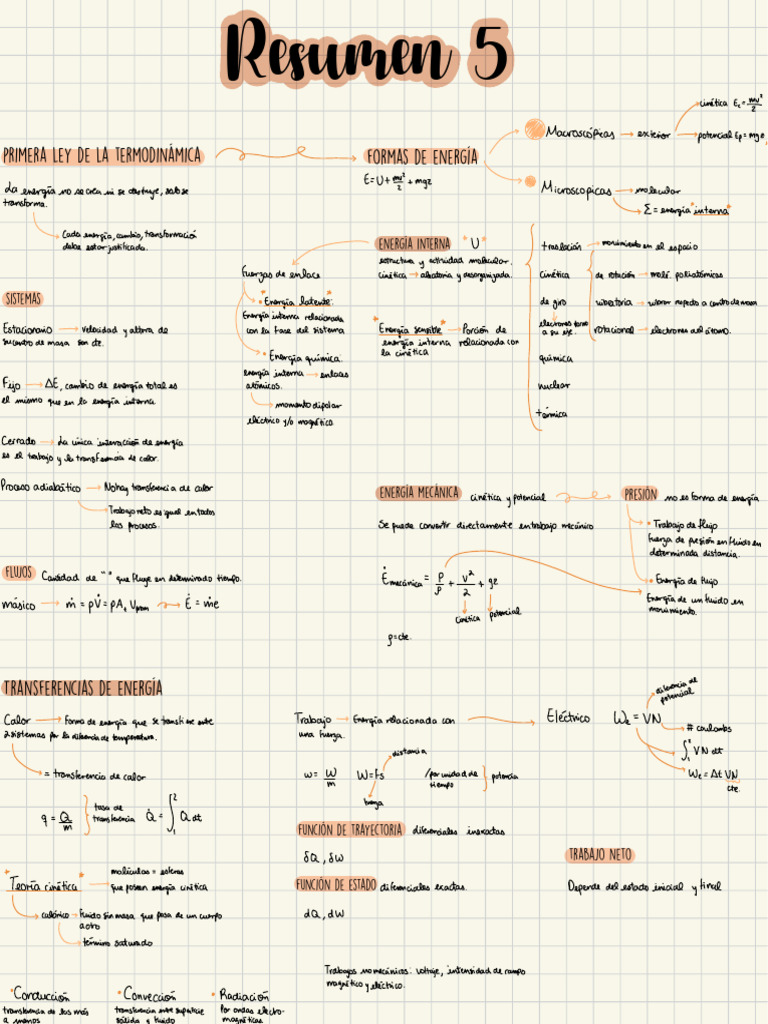 Resumen 5
PRIMERA LEY DE LA TERMODINÁMICA
La energía no se crea ni se destruye, solo se
transforma.
Cada energía, cambio, transformación
debe estar justificada.
FORMAS DE ENERGÍA
E = U + mv²/2 + mgz
Macroscópicas → exterior
cinética Ec = mv²/2
potencial Ep = mgz
Microscopicas → molecular
Σ = energía "interna"
ENERGÍA INTERNA "U"
estructura y actividad molecular.
cinética → aleatoria y desorganizada.
"Energía sensible" → Porción de
energía interna relacionada con
la cinética
Fuerzas de enlace
• "Energía latente":
Energía interna relacionada
con la fase del sistema
• Energía química:
energía interna → enlaces
atómicos.
momento dipolar
eléctrico y/o magnético
traslación → movimiento en el espacio
cinética
de rotación → molé. poliatómicas
de giro
electrones torno
a su eje.
vibratoria → vibrar respecto a centro de masa
rotacional → electrones del átomo.
química
nuclear
térmica
SISTEMAS
Estacionario → velocidad y altura de
su centro de masa son cte.
Fijo → ΔE, cambio de energía total es
el mismo que en la energía interna
Cerrado → La única interacción de energía
es el trabajo y la transferencia de calor.
Proceso adiabático → No hay transferencia de calor
→ Trabajo neto es igual en todos
los procesos.
FLUJOS Cantidad de " " que fluye en determinado tiempo.
másico → ṁ = ρV̇ = ρA Vprom → Ė = ṁe
ENERGÍA MECÁNICA cinética y potencial
Se puede convertir directamente en trabajo mecánico
Ėmecánica = P/ρ + v²/2 + gz
cinética potencial
ρ = cte.
PRESIÓN no es forma de energía
• Trabajo de flujo
fuerza de presión en fluido en
determinada distancia.
• Energía de flujo
Energía de un fluido en
movimiento.
TRANSFERENCIAS DE ENERGÍA
Calor → Forma de energía que se transfiere entre
2 sistemas por la diferencia de temperatura.
= transferencia de calor
q = Q/m
tasa de
transferencia
Q̇ = ∫₁² Q dt
"Teoría cinética"
moléculas = esferas
que poseen energía cinética
calórico → Fluido sin masa que pasa de un cuerpo
a otro
→ término saturado
• Conducción
transferencia de los más
a menos
• Convección
transferencia entre superficie
sólida y fluido
• Radiación
por ondas electro-
magnéticas
Trabajo → Energía relacionada con
una fuerza.
w = W/m
W = Fs
distancia
fuerza
/por unidad de
tiempo
potencia
Eléctrico We = VN
diferencia de
potencial
# coulombs
∫₁² VN dt
We = Δt VN
cte.
FUNCIÓN DE TRAYECTORIA diferenciales inexactas
δQ, δW
FUNCIÓN DE ESTADO diferenciales exactas.
dQ, dW
TRABAJO NETO
Depende del estado inicial y final
Trabajos no mecánicos: voltaje, intensidad de campo
magnético y eléctrico.